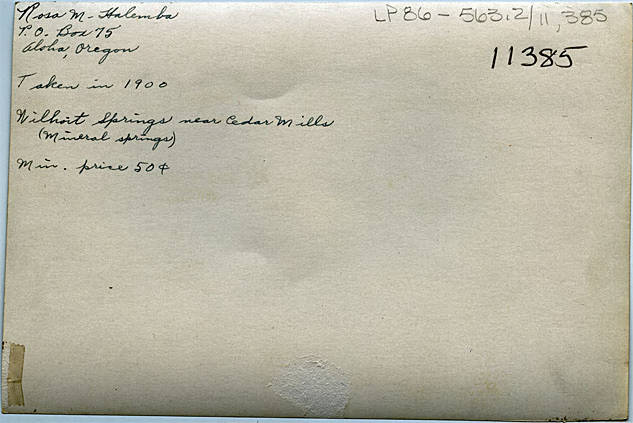 Rosa M. Halemba
P.O. Box 75
Aloha, Oregon
LP86-563.2/11,385
11385
Taken in 1900
Wilhoit Springs near Cedar Mills
(Mineral springs)
Min. price 50¢